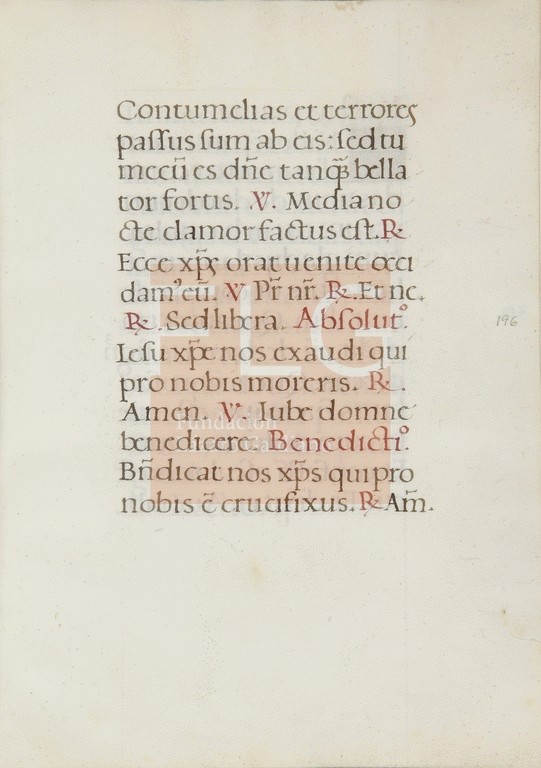 Contumelias et terrores
paſſus ſum ab eis: ſed tu
mecū es dn̄e tanq̄ȝ bella
tor fortis. ℣. Media no
cte clamor factus eſt. ℟
Ecce xp̄ꝰ orat uenite occi
damꝰ eū. ℣ Pr̄ nr̄. ℟. Et ne.
℟. Sed libera. Abſolutº.
Ieſu xp̄e nos exaudi qui
pro nobis moreris. ℟.
Amen. ℣. Iube domne
benedicere. Benedictiº.
Bn̄dicat nos xp̄s qui pro
nobis ē crucifixus. ℟ Am̄.
196
FLG
Fundación